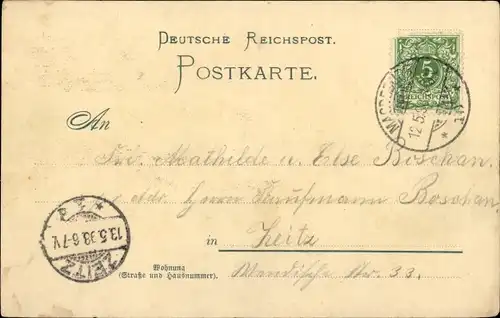 DEUTSCHE REICHSPOST.
POSTKARTE.
5
REICHSPOST
12.5.
An
Frl. Mathilde u. Else Boschan
adr. Herrn Kaufmann Boschan
in Zeitz
Wohnung
(Straße und Hausnummer).
Wendische Str. 33.
ZEITZ
13.5.98.6-7V.